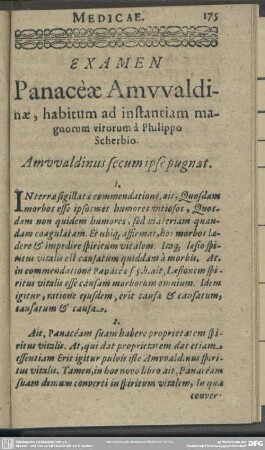 MEDICAE. 175
EXAMEN
Panaceæ Amvvaldi-
næ, habitum ad instantiam ma-
gnorum virorum à Philippo
Scherbio.
Amvvaldinus secum ipse pugnat.
1.
IN terræ sigillatæ commendatione, ait, Quosdam
morbos esse ipsosmet humores vitiosos, Quos-
dam non quidem humores, sed materiam quan-
dam coagulatam. Et ubiq, affirmat, hos morbos læ-
dere & impedire spiritum vitalem. Itaq, læsio spiri-
tus vitalis est causatum quiddam à morbis. At,
in commendatione Panaceæ f. 5. b. ait, Læsionem spi-
ritus vitalis esse causam morborum omnium. Idem
igitur, ratione ejusdem, erit causa & causatum,
causatum & causa.
2.
Ait, Panaceam suam habere proprietatem spi-
ritus vitalis. At, qui dat proprietatem dat etiam
essentiam Erit igitur pulvis iste Amvvaldinus spiri-
tus vitalis. Tamen, in hoc novo libro ait, Panaceam
suam demum converti in spiritum vitalem, In qua
conver-